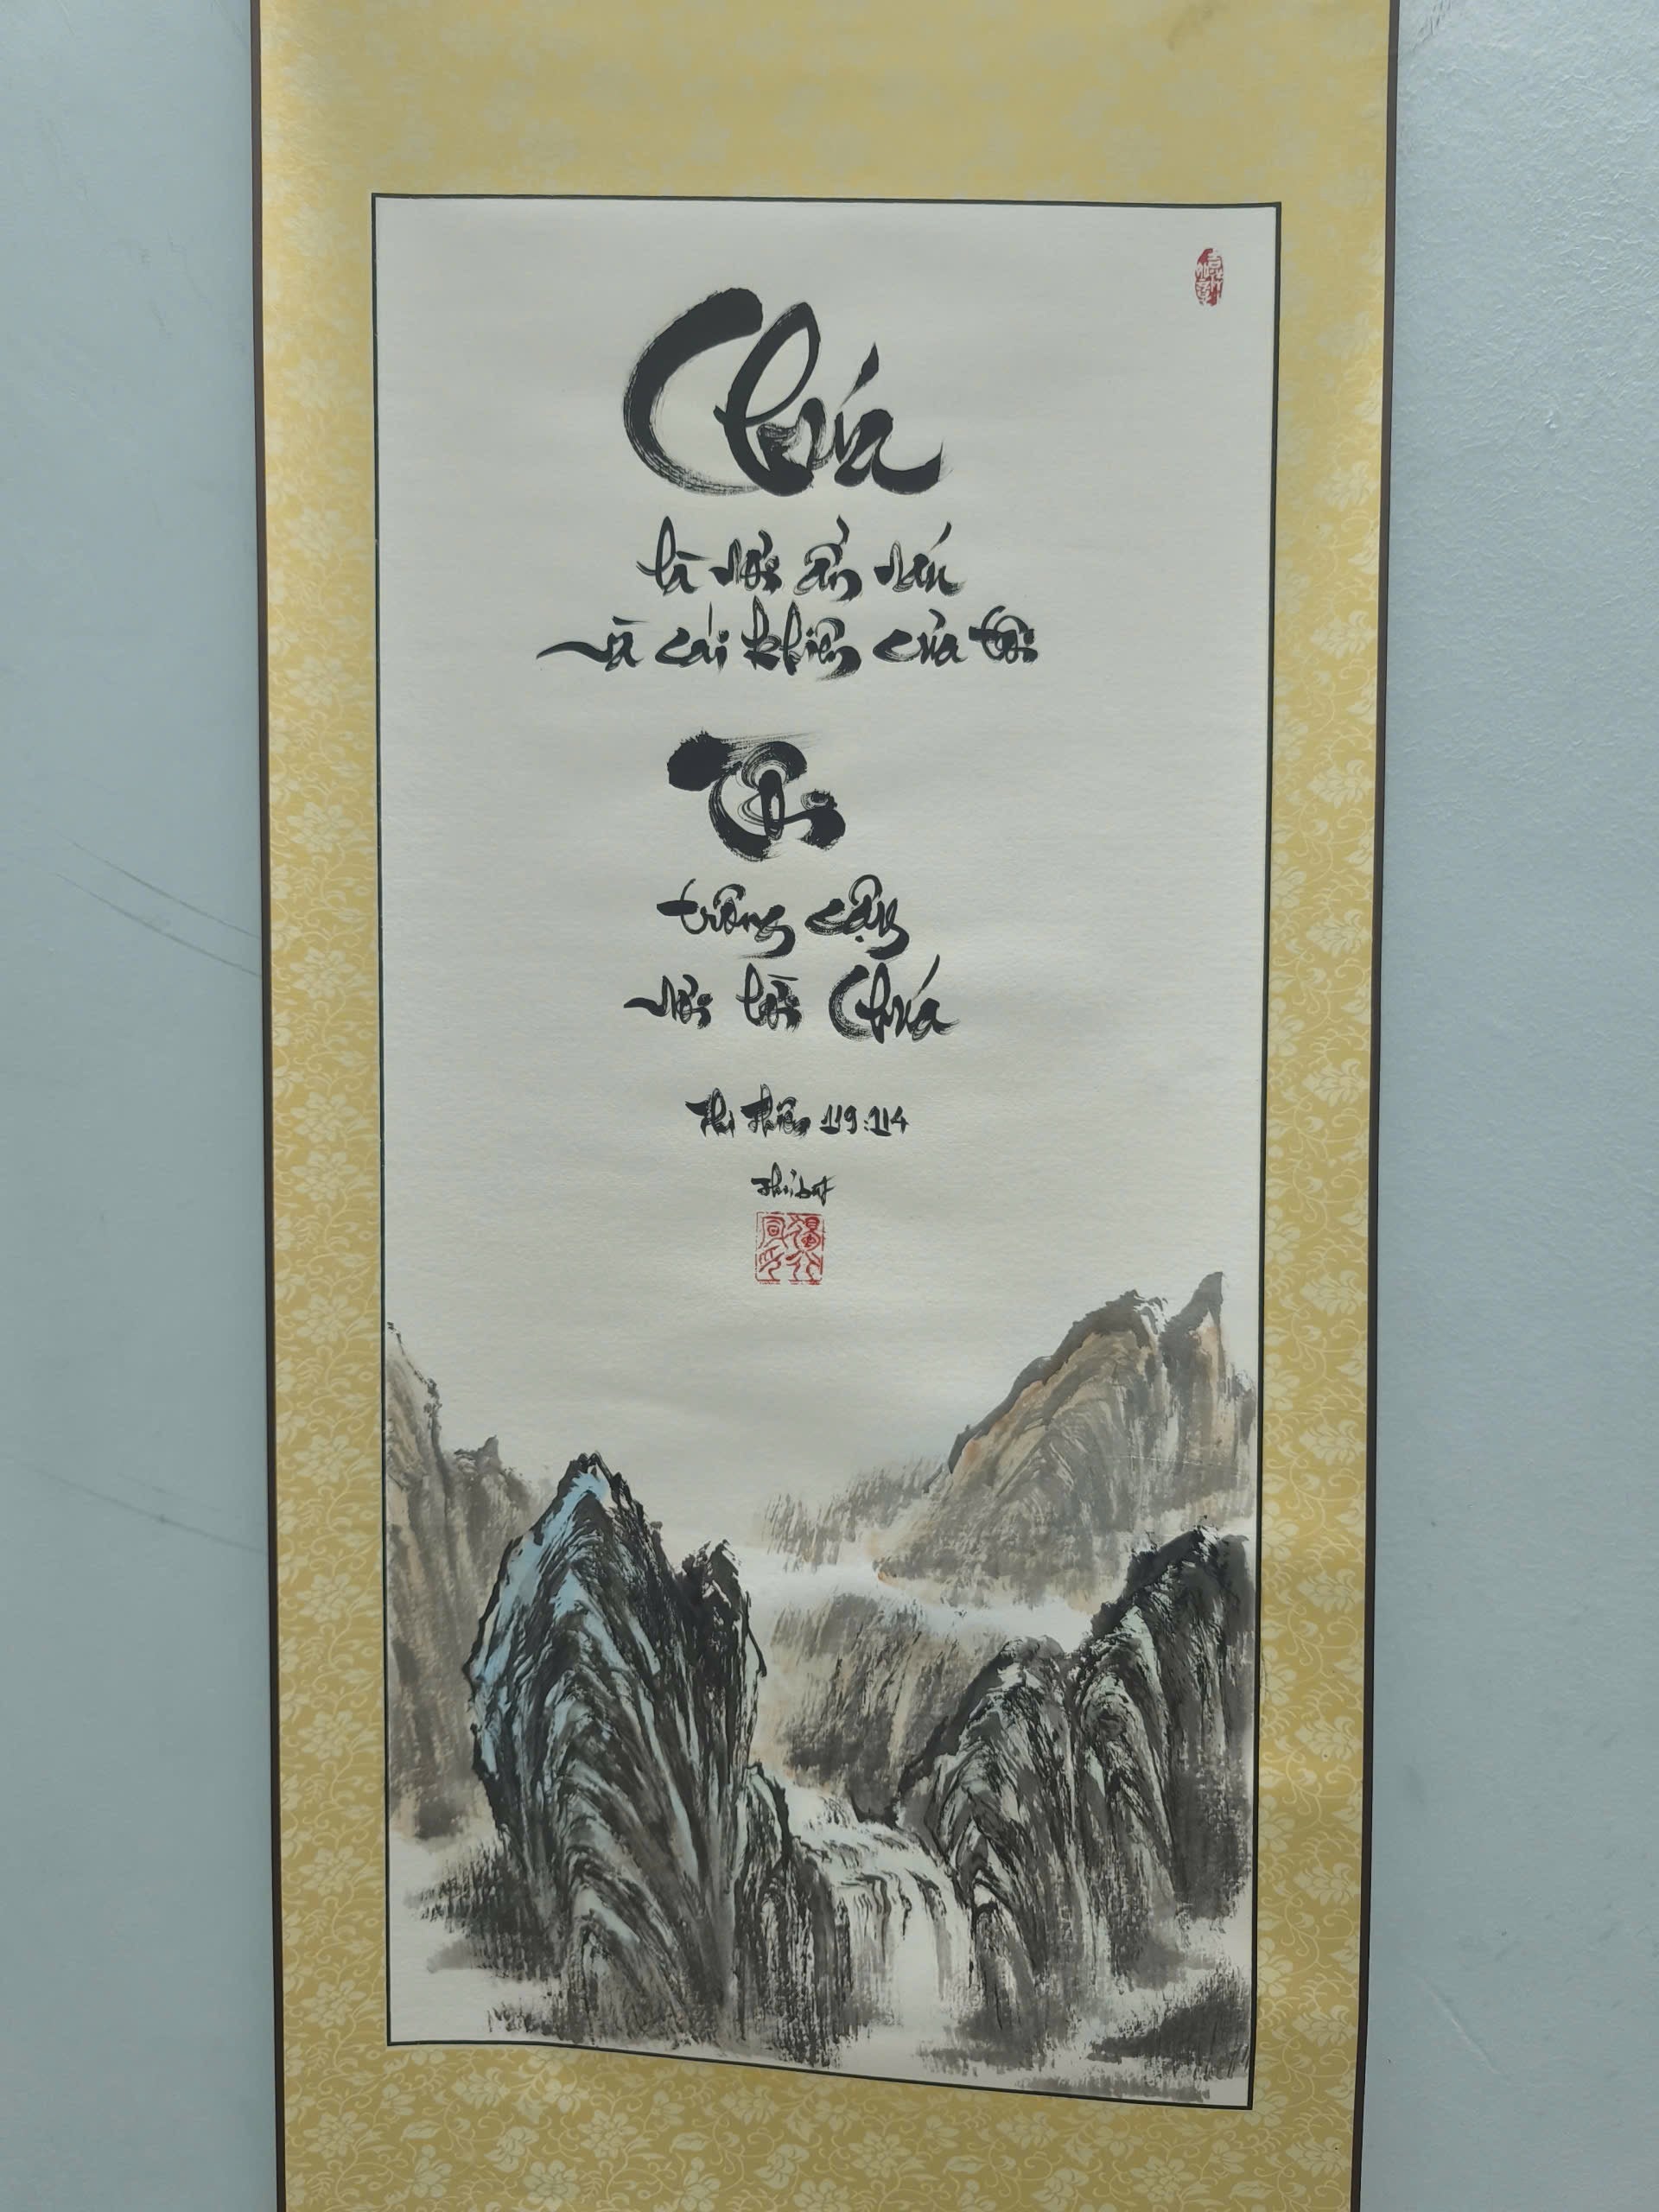 Chúa
là nơi ẩn náu
và cái khiên của tôi
Tôi
trông cậy
nơi lời Chúa
Thi Thiên 119:114